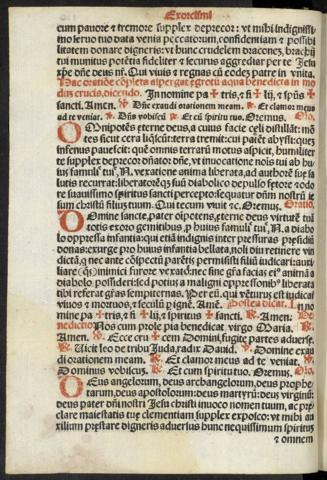 Exorcismi
cum pauore & tremore supplex deprecor: vt mihi indignissi-
mo seruo tuo data venia peccatorum, confidentiam & possibi
litatem donare digneris: vt hunc crudelem draconez, brachij
tui munitus potētia fideliter & securus aggrediar per te Jesu
xp̄e dn̄e deus nr̄. Qui viuis & regnas cū eodez patre in vnita.
Hac oratiōe cōpleta aspergat egrotū aqua benedicta in mo
dūz crucis, dicendo. In nomine pa ✠ tris, & fi ✠ lij, & spūs ✠
sancti. Amen. ℣. Dn̄e exaudi orationem meam. ℟. Et clamor meus
ad te veniat. ℣. Dn̄s vobiscū ℟. Et cū spiritu tuo. Oremus. Oño
OMnipotēs eterne deus, a cuius facie celi distillāt: mō
tes sicut cera liq̄scūt: terra tremit: cui patēt abyssi: ques
infernus pauescit: quē omnis irarū motus aspicit, humiliet
te supplex deprecor dn̄ator dn̄e, vt inuocatione noīs tui ab hu
ius famuli tui, N. vexatione anima liberata, ad authorē sue sa
lutis recurrat: liberatorēq; suū diabolico depulso fetore & odo
re suauissimo spiritus sancti percepto: sequatur dn̄m nostrū ie
sum christū filiuz tuum. Qui tecum viuit &c. Oremus. Oratio.
DOmine sancte, pater oīpotens, eterne deus virtutē tuā
totis exoro gemitibus, p huius famuli tui, N. a diabo
lo oppressa infantia: qui etiā indignis inter pressuras presidiū
donas: exurge pro huius infantia bellata, noli diu retinere vin
dictā, q̄ nec ante cōspectū parētis peruenit filij iudicari: auxi-
liare (q̄s) inimici furore vexatō: nec sine gr̄a facias ei⁹ animā a
diabolo possideri: sed potius a maligni oppressionib⁹ liberata
tibi referat gr̄as sempiternas. Per eū, qui vēturus est iudicare
viuos & mortuos, & seculū p ignē. Amē. Postea dicat. In no
mine pa ✠ tris, & fi ✠ lij, & spiritus ✠ sancti. ℟. Amen. Be
nedictio. Nos cum prole pia benedicat virgo Maria. ℟.
Amen. ℣. Ecce cru ✠ cem Domini, fugite partes aduerse.
℟. Vicit leo de tribu Juda, radix Dauid. ℣. Domine exau
di orationem meam. ℟. Et clamor meus ad te veniat. ℣.
Dominus vobiscuz. ℟. Et cum spiritu tuo. Oremus. Oño
DEus angelorum, deus archangelorum, deus prophe
tarum, deus apostolorum: deus martyrū: deus virginū:
deus pater dn̄i nostri iesu christi inuoco nomen tuum, ac p̄e-
clare maiestatis tue clementiam supplex exposco: vt mihi au
xilium prestare digneris aduersus hunc nequissimum spiritus
& omnem